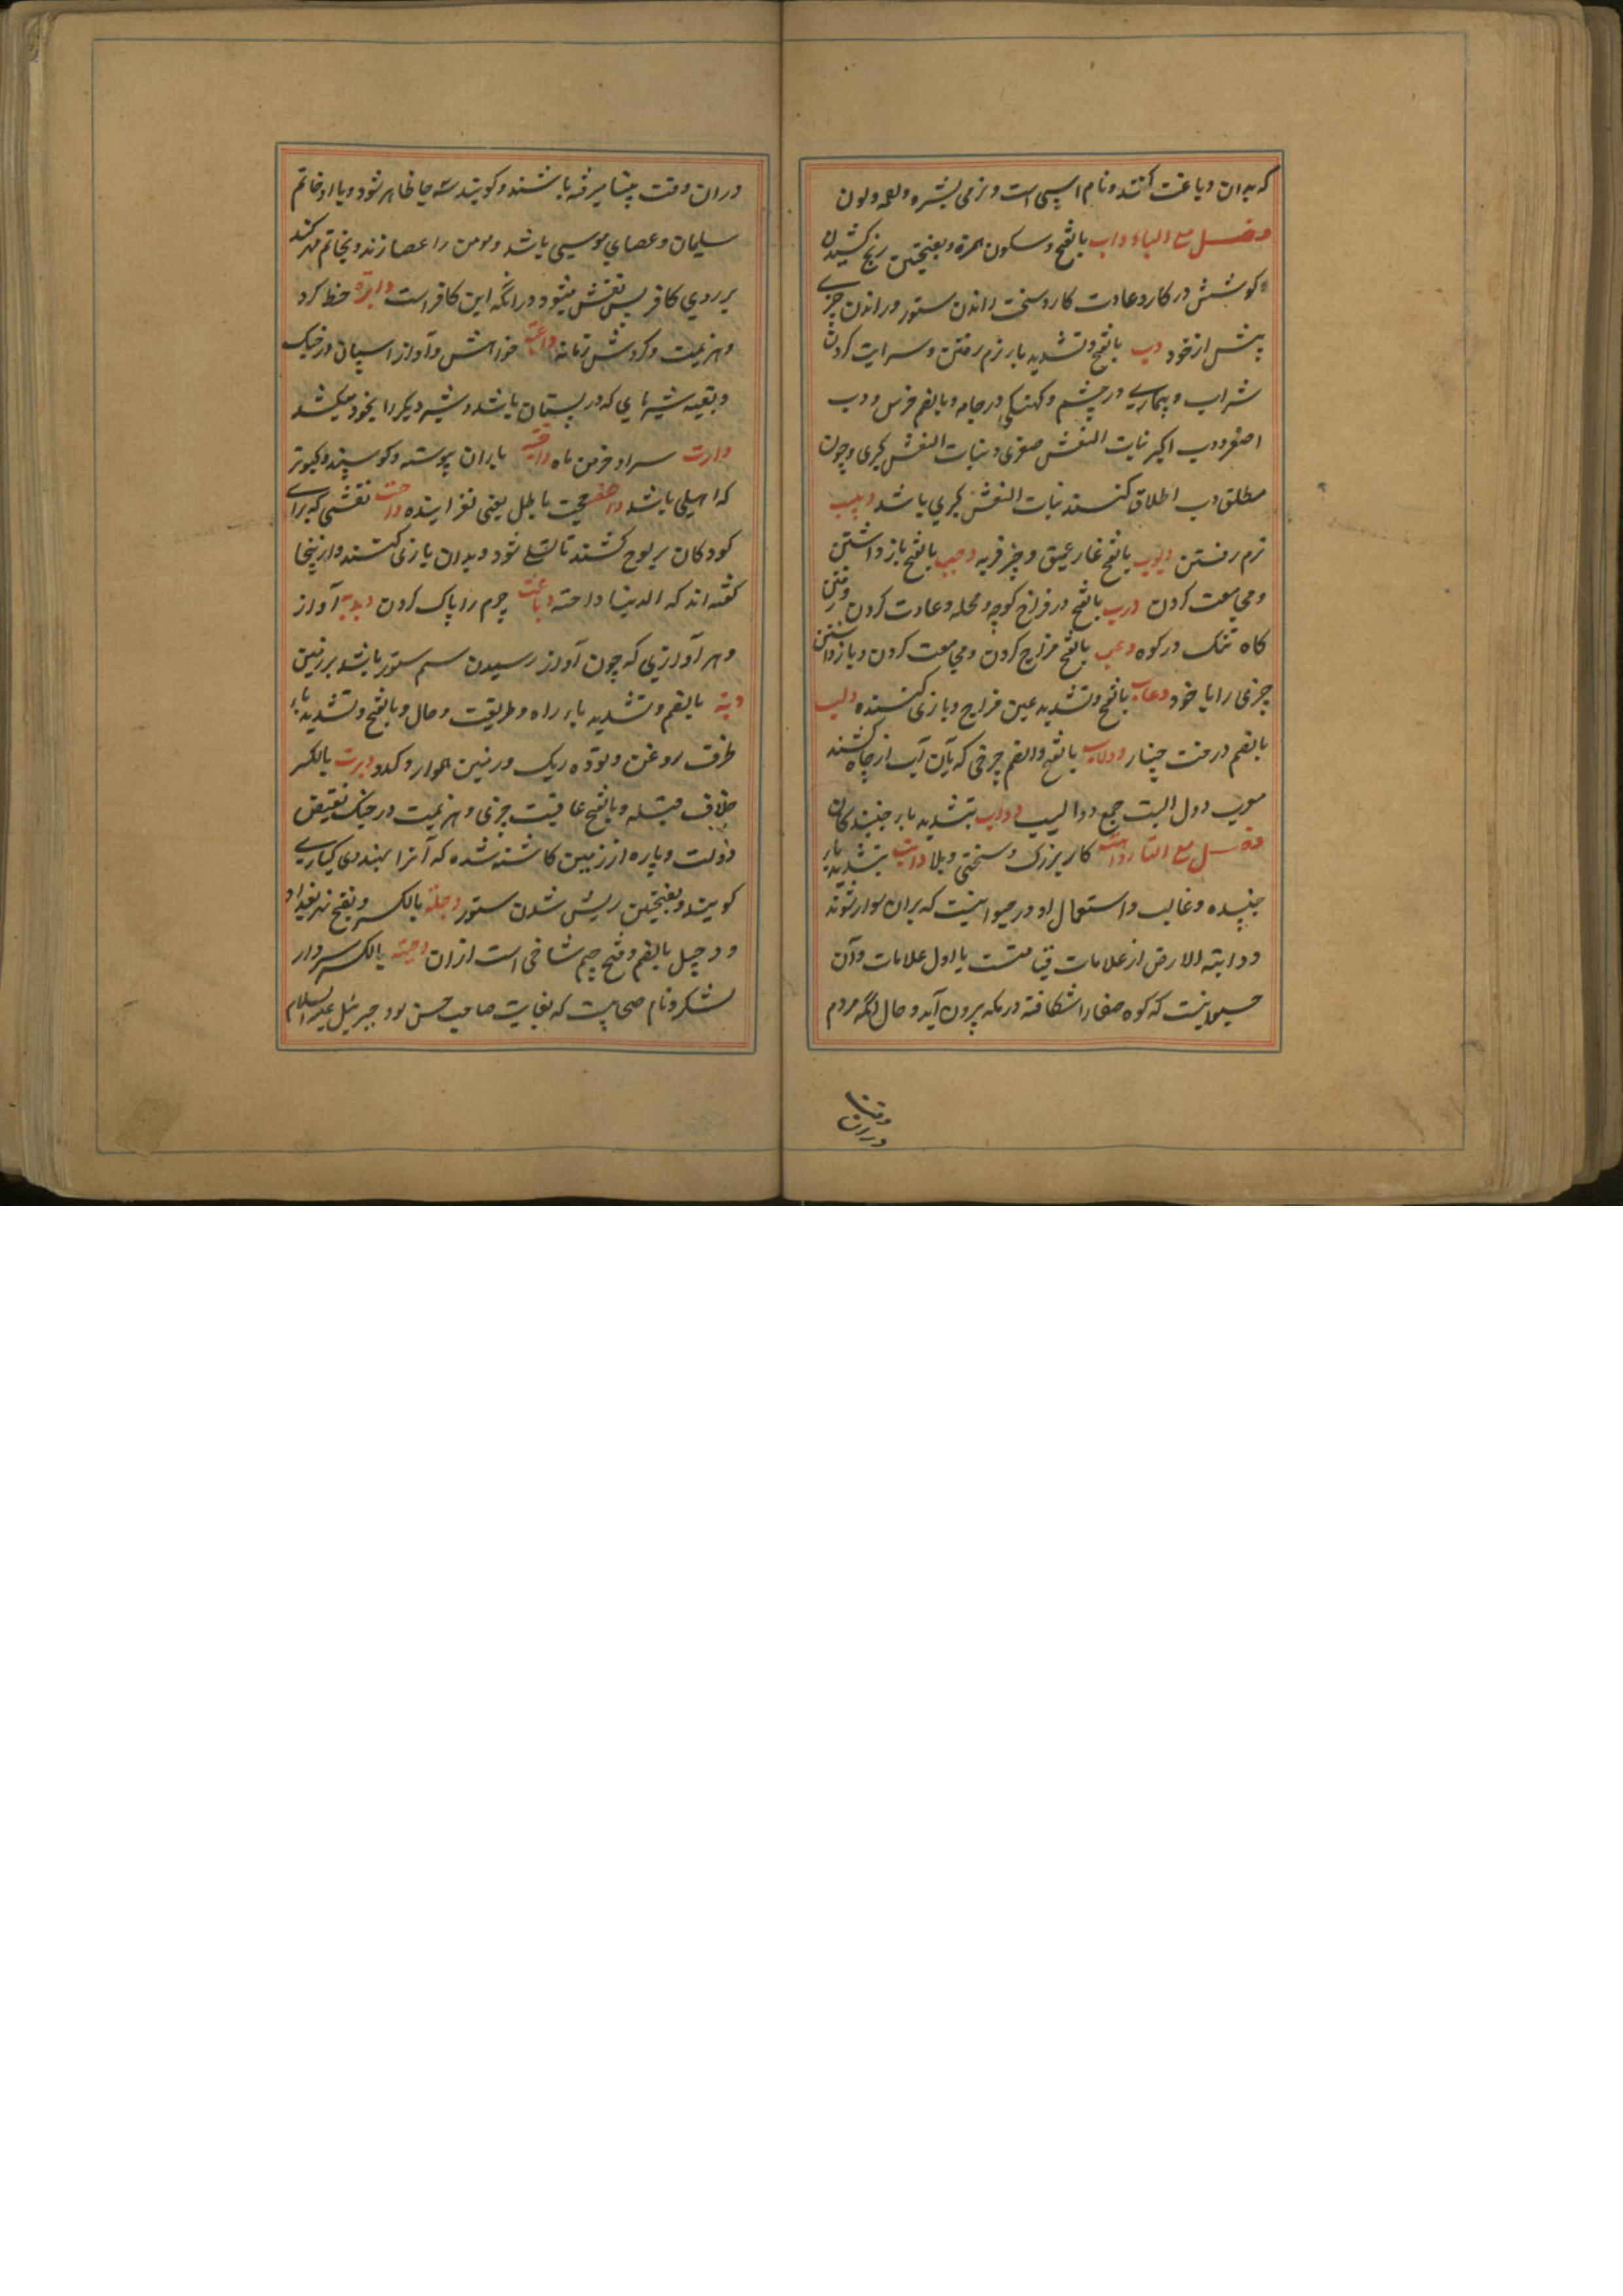 که بدان دباغت کنند و نام اسپی است و نرمی بشره و لون
فصل مع الباء داب بالفتح و سکون همزه و بفتحتین رنج کشیدن
و کوشش در کار و عادت کار و سخت راندن ستور و راندن چیزے
پیش از خود دب بالفتح و تشدید با نرم رفتن و سرایت کردن
شراب و بیمارے در جسم و کهنگی در جامه و بالضم خرس و دب
اصغر و دب اکبر بنات النعش صغری و بنات النعش کبری و چون
مطلق دب اطلاق کنند بنات النعش کبری باشد دبیب
نرم رفتن دبوب بالفتح غار عمیق و چیز فربه دجب بالفتح باز داشتن
و مجامعت کردن درب بالفتح در فراخ کوچه و محله و عادت کردن و رفتن
گاه تنک در کوه دعب بالفتح مزاح کردن و مجامعت کردن و باز داشتن
چیزی را با خود دعاب بالفتح و تشدید عین مزاح و بازی کننده دلب
بالضم درخت چنار دولاب بالفتح و الضم چرخی که بآن آب از چاه کشند
معرب دول البت جمع دوالیب دواب بتشدید باء جنبندگان
فصل مع التاء کار بزرگ و سختی و بلا دابت بتشدید باء
جنبنده و غالب و استعمال او در حیوانیست که بران سوار شوند
و دابته الارض از علامات قیامتست یا اول علامات و آن
حیوانیست که کوه صفا را شکافته در مکه بیرون آید و حال آنکه مردم
دران وقت
دران وقت بمنا میرفته باشند و گویند سه جا ظاهر شود و با او خاتم
سلیمان و عصای موسی باشد و مومن را عصا زند و بخاتم مهر کند
بر روی کافر پس نقش میشود درانکه این کافر است دایره خط گرد
و هزیمت و گردش زمانه خواهش و آواز اسپان در جنگ
و بقیه شیر هاى که در پستان باشد و شیر دیگر را بخود میکشد
دارت سرا و خرمن ماه باران پیوسته و گوسپند و کبوتر
که اهلی باشد داحضه حجت باطل یعنی لغزاینده داحت نقشی که براے
کودکان بر لوح کشند تا تسلے شود و بدان بازی کنند و ازینجا
گفته اند که الدنیا داحته دباغت چرم را پاک کردن دبدبه آواز
و هر آوازی که چون آواز رسیدن سم ستور باشد بر زمین
دبة بالضم و تشدید باء راه و طریقت و حال و بالفتح و تشدید باء
ظرف روغن و توده ریک و زمین هموار و کدو دبرت بالکسر
خلاف قبله و بالفتح عاقبت چیزی و هزیمت در جنگ نقیض
دولت و پاره از زمین کاشته شده که آنرا بهندی کیارے
گویند و بفتحتین ریش شدن ستور دجلة بالکسر و بفتح نهر بغداد
و دجیل بالضم و فتح جیم شاخی است ازان دحیته بالکسر سردار
لشکر و نام صحابیست که بغایت صاحب حسن بود جبرئیل علیه السلام